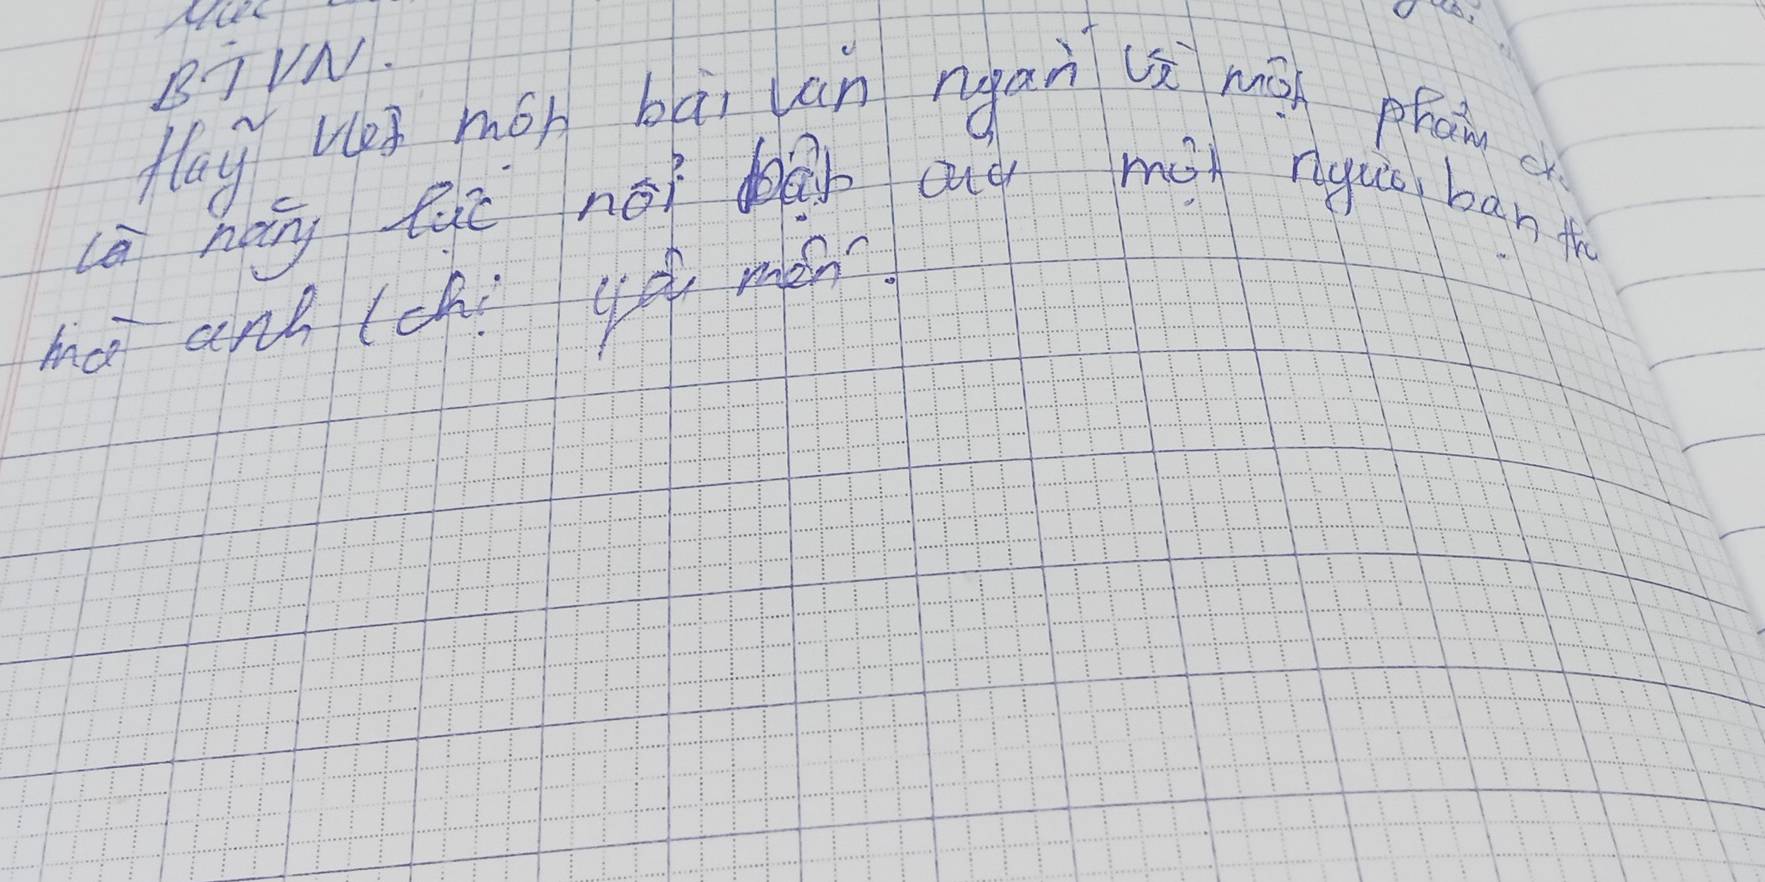 BTVN.
Hãy viết một bài văn ngắn về một phẩm ch
là năng lực nổi bật của một người bạn th
mà anh (chị yêu mến.